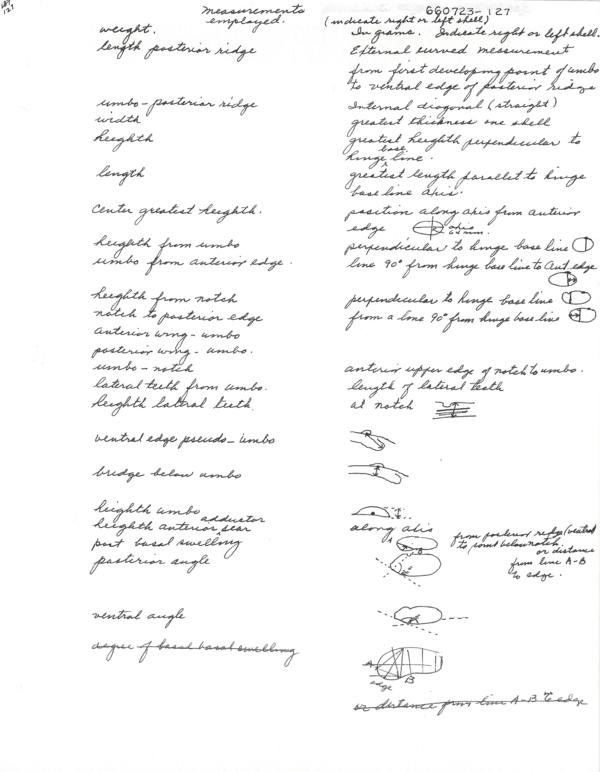 127
660723-127
measurements employed.
(indicate right or left shell)
weight. In grams. Indicate right or left shell.
length posterior ridge External curved measurement
from first developing point of umbo
to ventral edge of posterior ridge
umbo - posterior ridge Internal diagonal (straight)
width greatest thickness one shell
heighth greatest heighth perpendicular to
hinge base line.
length greatest length parallel to hinge
base line axis.
Center greatest heighth. position along axis from anterior
edge axis
heighth from umbo perpendicular to hinge base line
umbo from anterior edge. line 90° from hinge base line to Ant. edge
heighth from notch perpendicular to hinge base line
notch to posterior edge from a line 90° from hinge base line
anterior wing - umbo
posterior wing - umbo.
umbo - notch anterior upper edge of notch to umbo.
lateral teeth from umbo. length of lateral teeth
heighth lateral teeth. at notch
ventral edge pseudo - umbo
bridge below umbo
heighth umbo
heighth anterior adductor scar along axis
post basal swelling A B from posterior ridge (ventral
to point below notch.
or distance
from line A-B
to edge.
posterior angle
ventral angle
degree of basal basal swelling
A B
edge
or distance from line A-B to edge